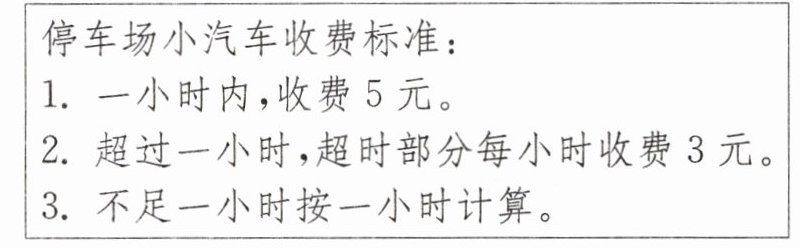 停车场小汽车收费标准：
1. 一小时内，收费 5 元。
2. 超过一小时，超时部分每小时收费 3 元。
3. 不足一小时按一小时计算。